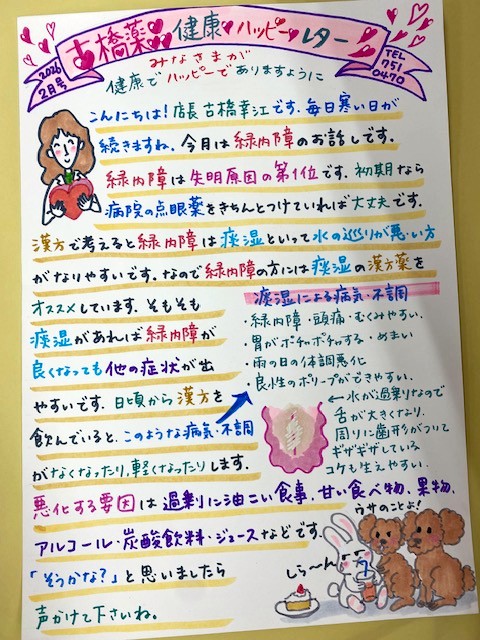 古橋薬局 健康ハッピーレター
2026 2月号
TEL 751 0470
みなさまが
健康でハッピーでありますように
こんにちは!店長 古橋幸江です。毎日寒い日が
続きますね。今月は緑内障のお話しです。
緑内障は失明原因の第1位です。初期なら
病院の点眼薬をきちんとつけていれば大丈夫です。
漢方で考えると緑内障は痰湿といって水の巡りが悪い方
がなりやすいです。なので緑内障の方には痰湿の漢方薬を
オススメしています。そもそも
痰湿があれば緑内障が
良くなっても他の症状が出
やすいです。日頃から漢方を
飲んでいると、このような病気・不調
がなくなったり、軽くなったりします。
痰湿による病気・不調
・緑内障・頭痛・むくみやすい。
・胃がポチャポチャする・めまい
・雨の日の体調悪化
・良性のポリープができやすい。
←水が過剰なので
舌が大きくなり、
周りに歯形がついて
ギザギザしている
コケも生えやすい。
悪化する要因は過剰に油こい食事、甘い食べ物、果物、
アルコール・炭酸飲料・ジュースなどです。
「そうかな?」と思いましたら
声かけて下さいね。
ウサのことよ!
しら〜ん